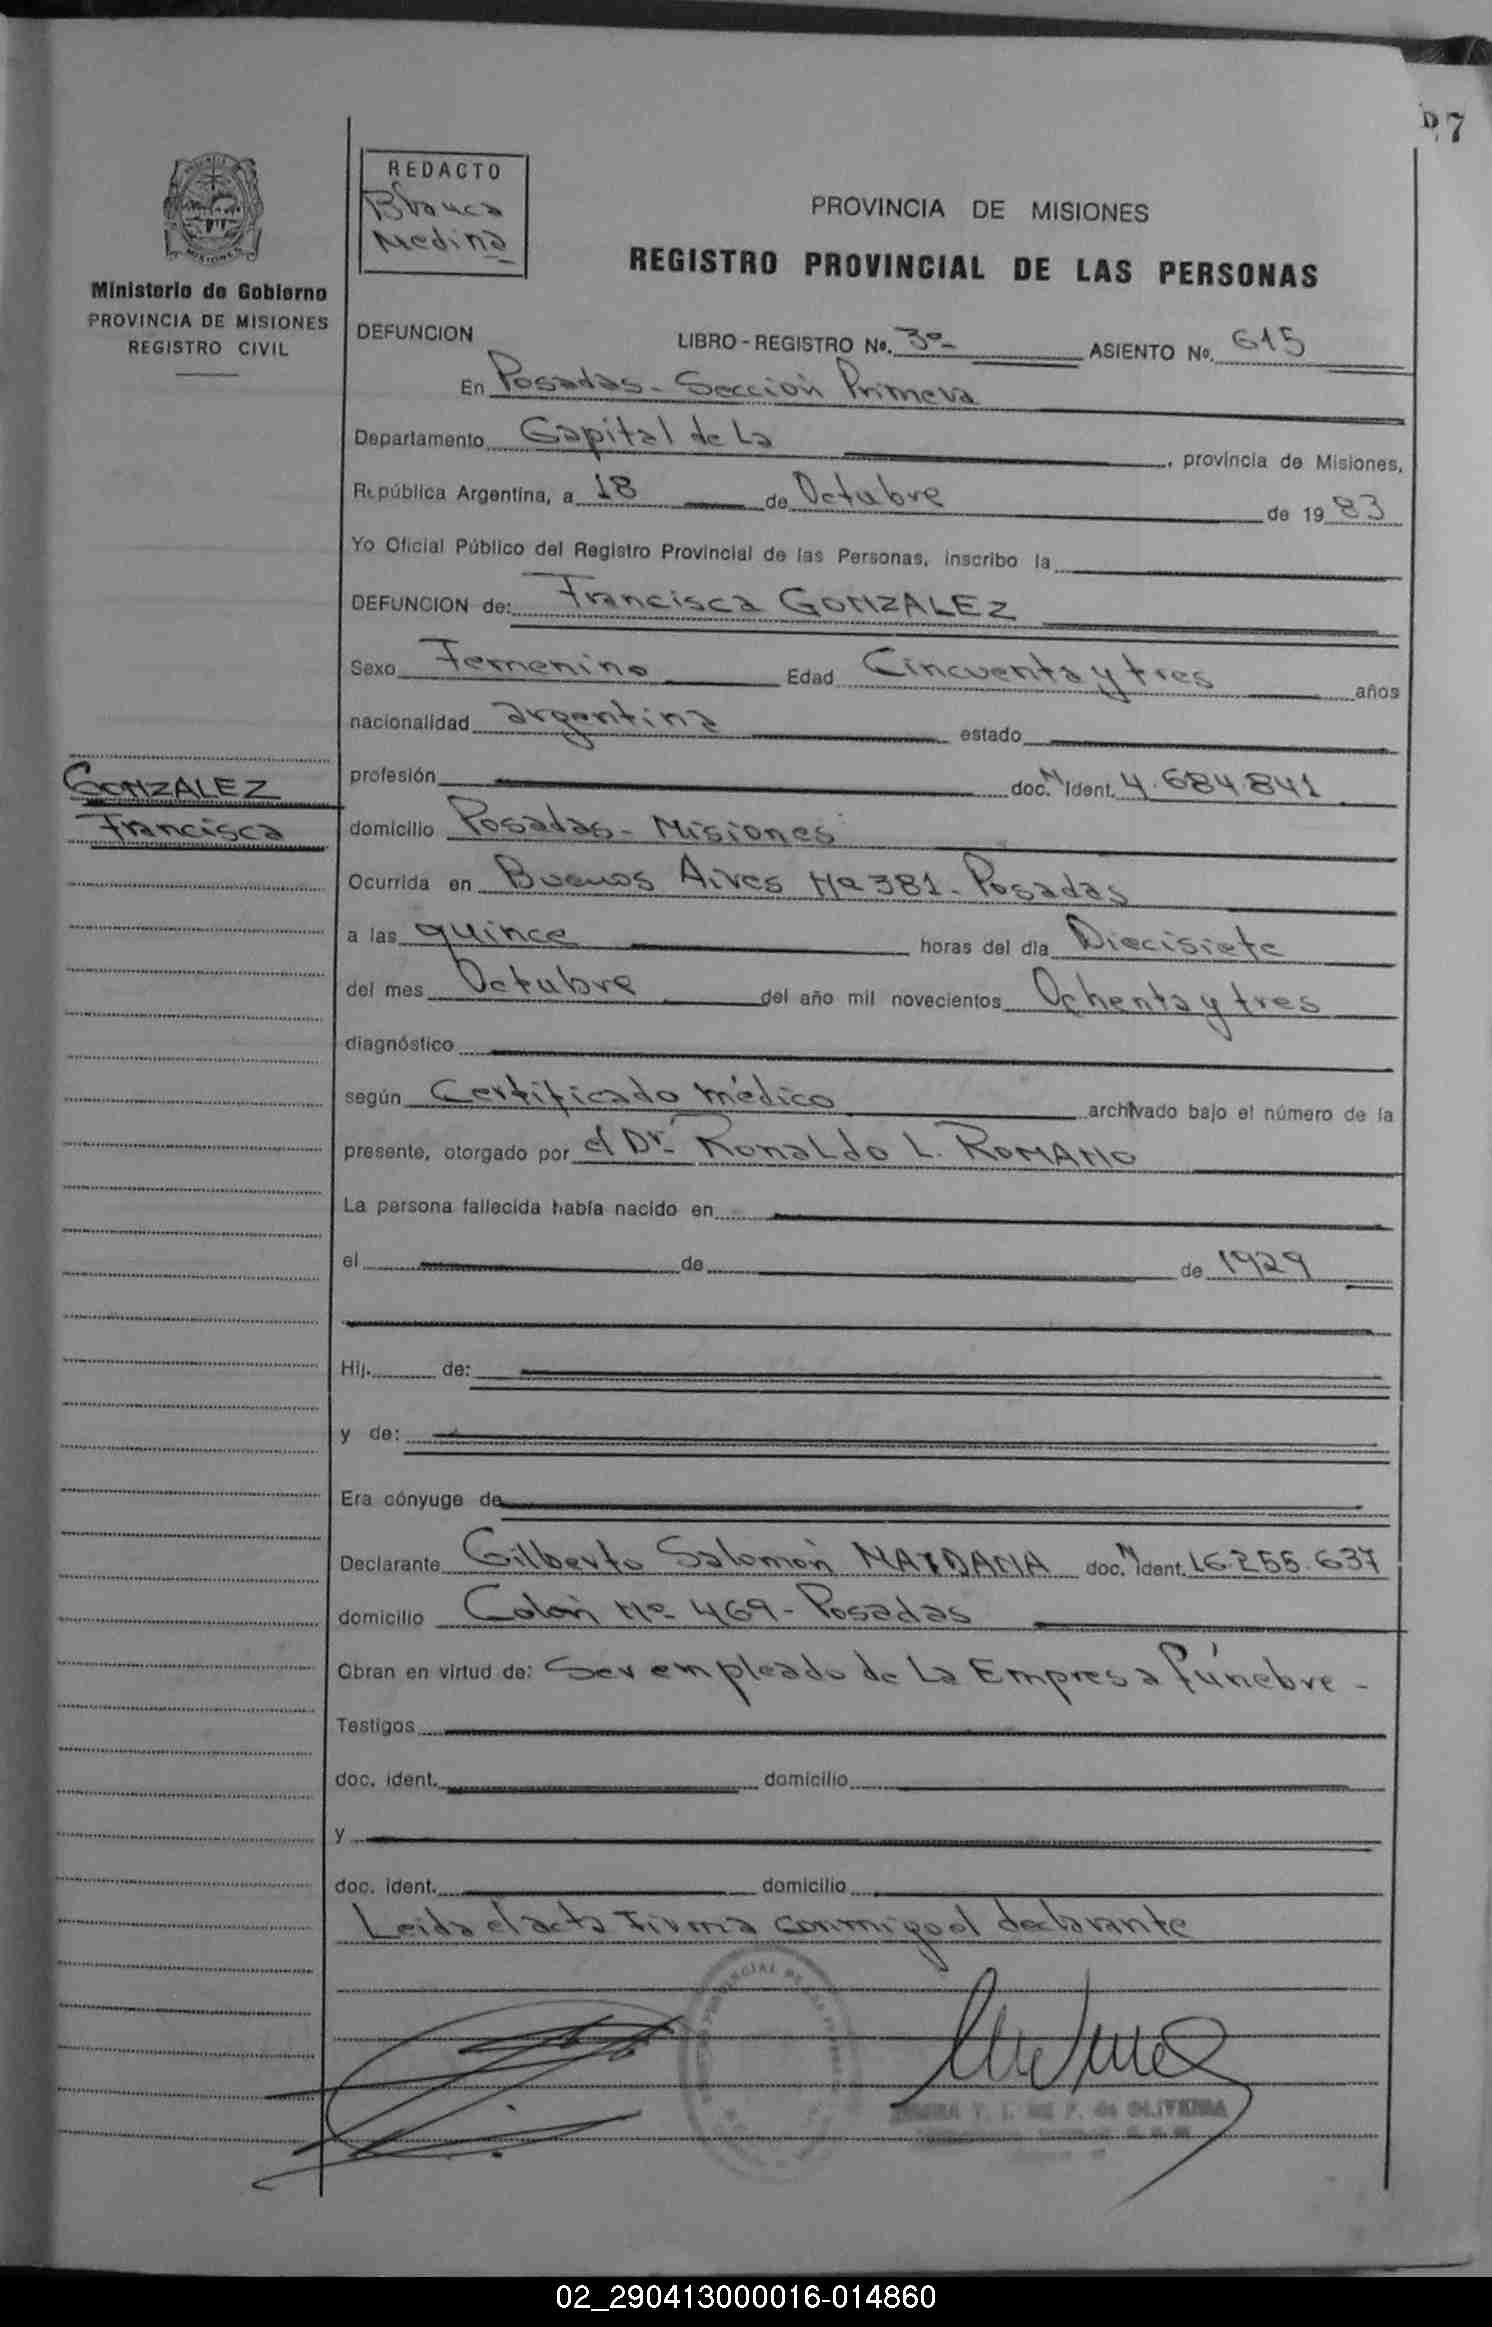 D 7
REDACTO
Blanca
Medina
PROVINCIA DE MISIONES
REGISTRO PROVINCIAL DE LAS PERSONAS
MISIONES
Ministerio de Gobierno
PROVINCIA DE MISIONES
REGISTRO CIVIL
DEFUNCION LIBRO - REGISTRO No. 3º- ASIENTO No. 615
En Posadas - Sección Primera
Departamento Capital de La , provincia de Misiones,
República Argentina, a 18 de Octubre de 19 83
Yo Oficial Público del Registro Provincial de las Personas, inscribo la
DEFUNCION de: Francisca GONZALEZ
Sexo Femenino Edad Cincuenta y tres años
nacionalidad argentina estado
GONZALEZ
Francisca
profesión doc. N Ident. 4.684.841
domicilio Posadas - Misiones
Ocurrida en Buenos Aires Nº 381 - Posadas
a las quince horas del día Diecisiete
del mes Octubre del año mil novecientos Ochenta y tres
diagnóstico
según Certificado médico archivado bajo el número de la
presente, otorgado por el Dr. Ronaldo L. ROMANO
La persona fallecida había nacido en
el de de 1929
Hij. de:
y de:
Era cónyuge de
Declarante Gilberto Salomón MAIDANA doc. N Ident. 16.255.637
domicilio Colón Nº 469 - Posadas
Obran en virtud de: Ser empleado de La Empresa fúnebre -
Testigos
doc. ident. domicilio
y
doc. ident. domicilio
Leida el acta Firma conmigo el declarante
de OLIVEIRA
02_290413000016-014860